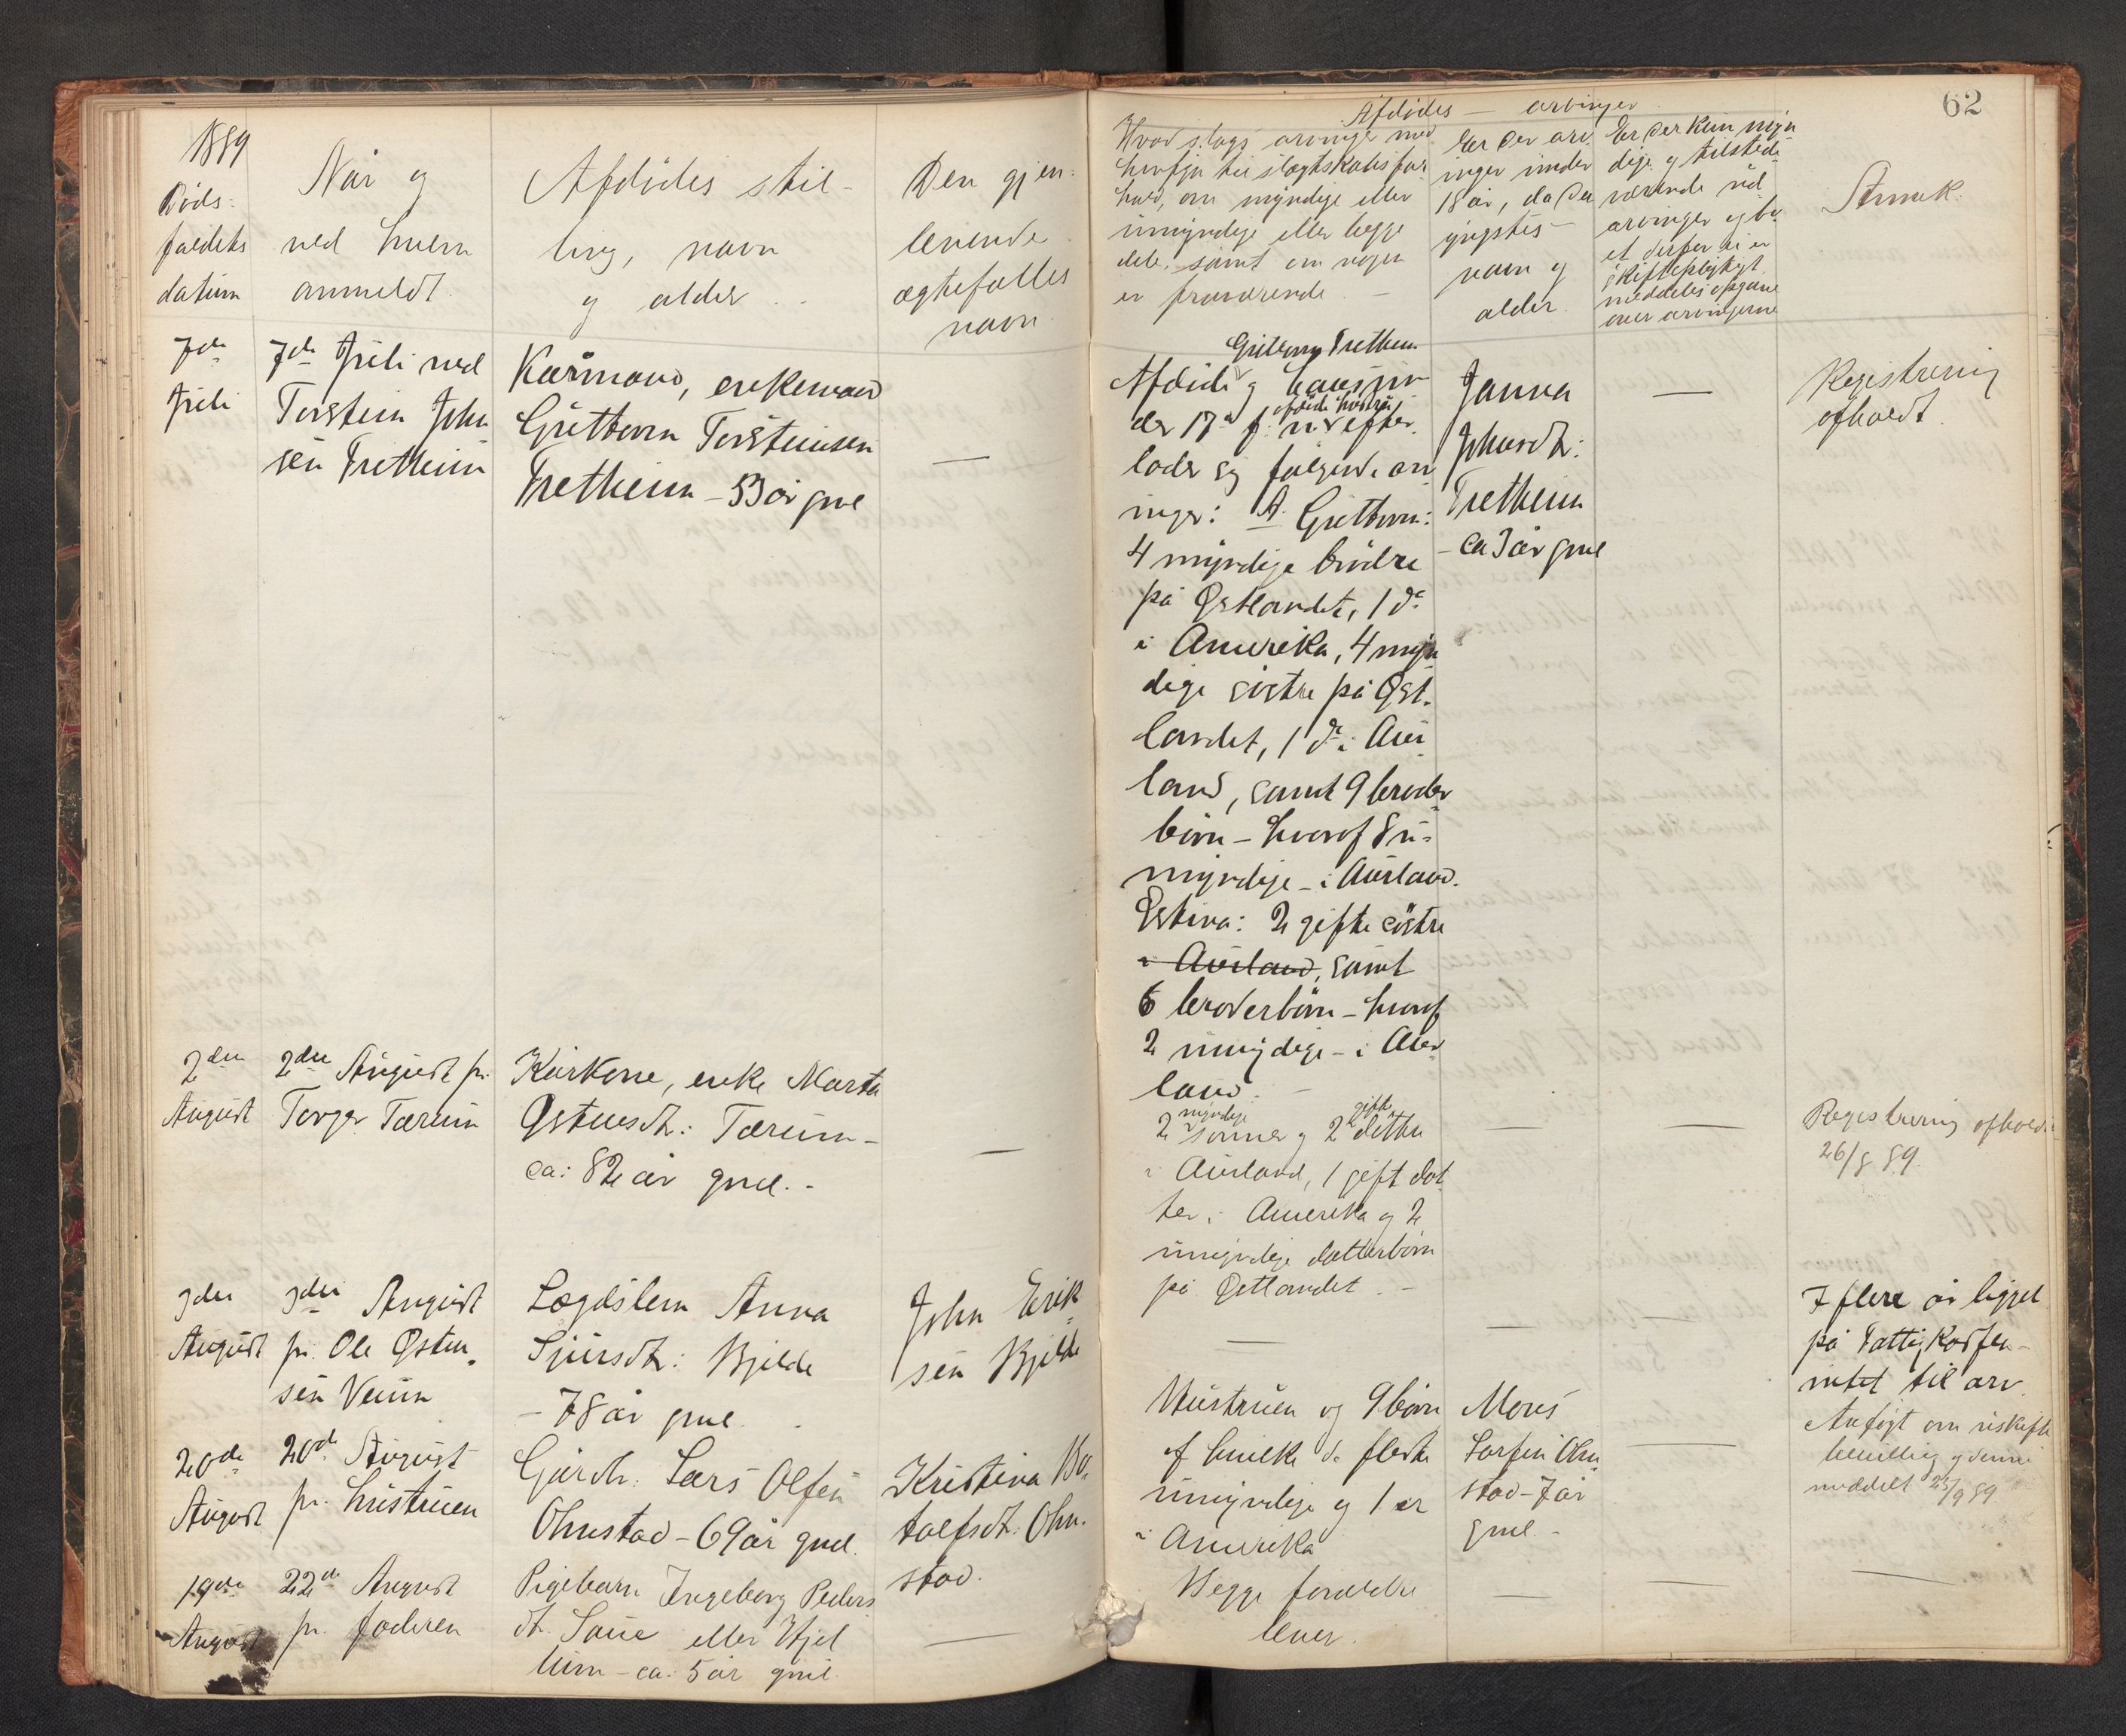 1889
Døds-
faldets
datum
Når og
ved hvem
anmeldt.
Afdødes stil-
ling, navn
og alder.
Den gjen-
levende
ægtefælles
navn.
62
Afdødes — arvinger
Hvad slags arvinger med
hensyn til slægtskabsfor
hold, om myndige eller
umyndige eller begge
dele, samt om nogen
er fraværende. —
Er der arv
inger under
18 år, da den
yngstes
navn og
alder.
Er der kun myn
dige og tilstede
værende ud
arvinger og bo
et derfor ei er
skiftepligtigt
meddeles opgave
over arvingerne
Anmk.
7de
Juli
7de Juli ved
Torstein John
sen Fretheim
Kårmand, enkemand
Guttorm Torsteinsen
Fretheim – 53 år gml
—
Guttorm Fretheim
Afdøde og hans
afdøde hustru
der 17de f. efter
lader sig følgende arv
inger: A. Guttorm:
4 myndige brødre
på Østlandet, 1 do
i Amerika, 4 myn
dige søstre på Øst-
landet, 1 do i Aur
land, samt 9 broder
børn – hvoraf 8 u-
myndige – i Aurland.
Østina: 2 gifte søstre
i Aurland, samt
6 broderbørn – hvoraf
2 umyndige – i Aur
land. —
Janna
Johnsdt:
Fretheim
– ca 3 år gml
—
Registrering
afholdt.
2den
August
2den August pr.
Torger Tærum
Kårkone, enke Marta
Østensdt: Tærum –
ca: 82 år gml. -
—
2 myndige sønner og 2 gifte døttre
i Aurland, 1 gift dat
ter i Amerika og 2
umyndige datterbørn
på Østlandet. —
—
—
Registrering afholdt
26/8 89.
9den
August
9den August
pr. Ole Østen-
sen Veum
Lægdslem Anna
Sjursdt: Bjelde
– 78 år gml.
John Erik
sen Bjelde
—
—
—
I flere år ligget
på Fattigkassen –
intet til arv.
20de
August
20de August
pr. hustruen
Gårdbr. Lars Olsen
Ohnstad – 69 år gml.
Kristina Bo-
tolfsdt. Ohn-
stad.
Hustruen og 9 børn
af hvilke de fleste
umyndige og 1 er
i Amerika
Mons
Larsen Ohn
stad – 7 år
gml. –
—
Ansøgt om uskifte
bevilling og denne
meddelt 25/9 89
19de
August
22de August
pr. faderen
Pigebarn Ingeborg Peders
dt. Saue eller Hjel
lum – ca: 5 år gml.
—
Begge forældre
lever.
—
—
—